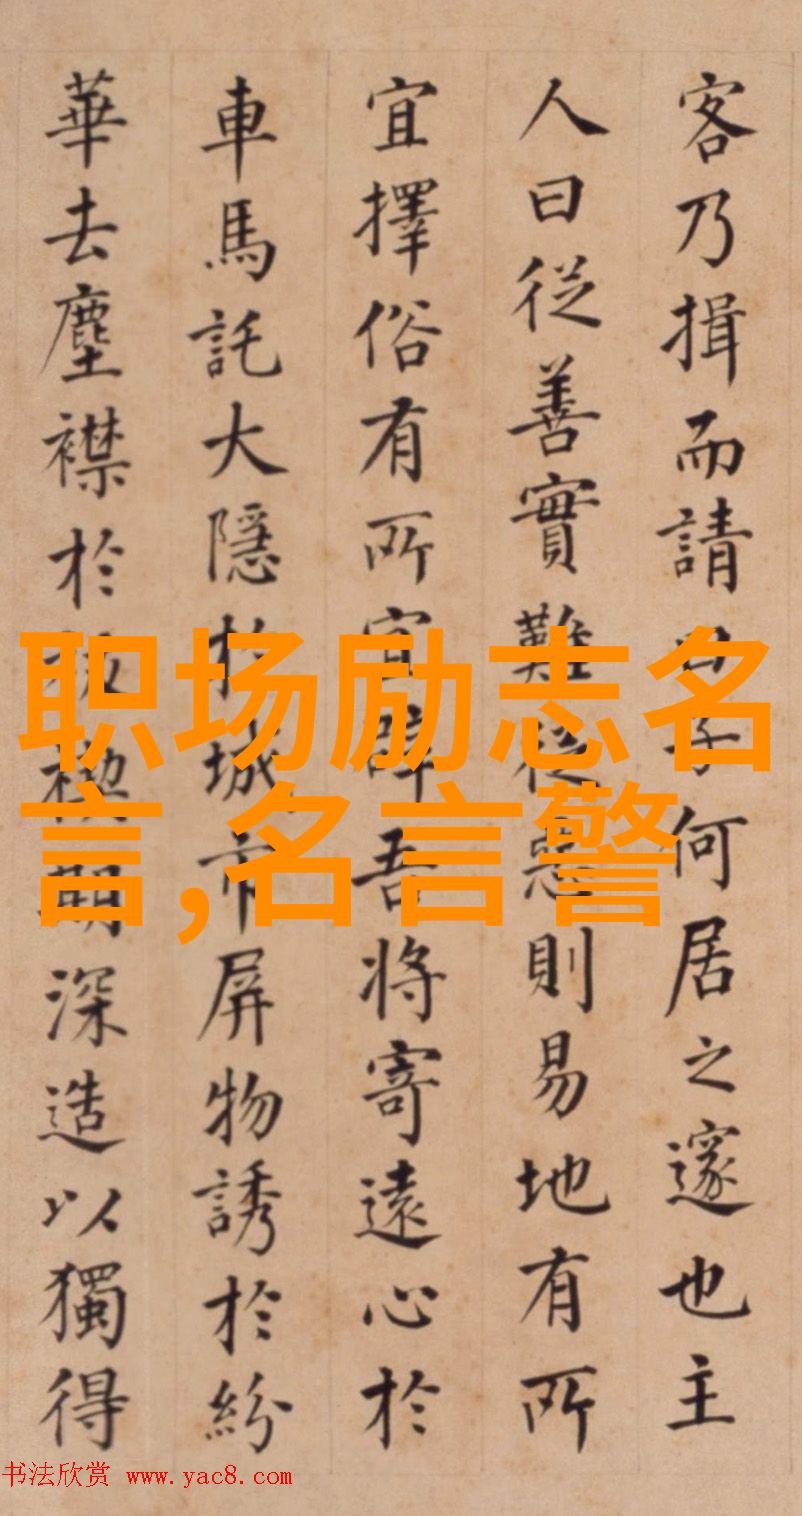 客乃揖而請曰子何居之邃也主
人曰從善實難從惡則易地有所
宜擇俗有所宜辟吾將寄遠心於
車馬託大隱於城市屏物誘於紛
華去塵襟於祓禊期深造以獨得
职场励志名
言,名言警
书法欣赏 www.yac8.com